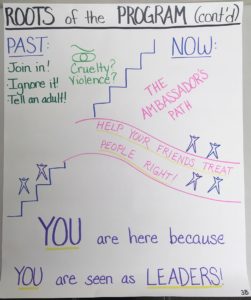 ROOTS of the PROGRAM (cont'd)
PAST:
Join in!
Ignore it!
Tell an adult!
Cruelty?
Violence?
NOW:
THE
AMBASSADOR'S
PATH
HELP YOUR FRIENDS TREAT
PEOPLE RIGHT!
YOU are here because
YOU are seen as LEADERS!